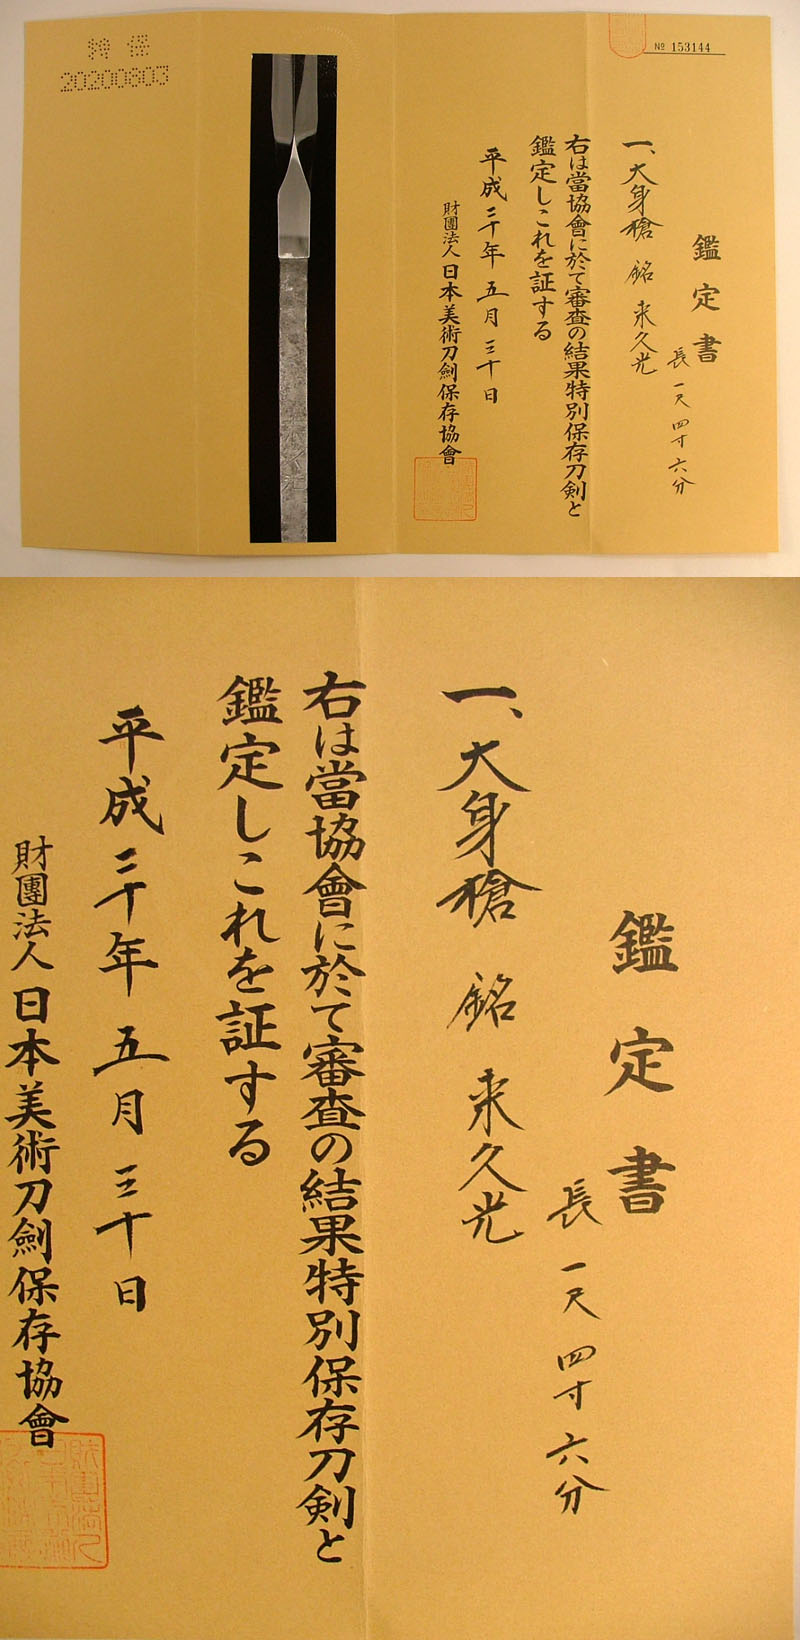 № 153144
鑑定書
長一尺四寸六分
一、大身槍 銘 来久光
右は當協會に於て審査の結果特別保存刀剣と
鑑定しこれを証する
平成二十年五月三十日
財團法人日本美術刀劍保存協會
特保
20200803
鑑定書
長一尺四寸六分
一、大身槍 銘 来久光
右は當協會に於て審査の結果特別保存刀剣と
鑑定しこれを証する
平成二十年五月三十日
財團法人日本美術刀劍保存協會